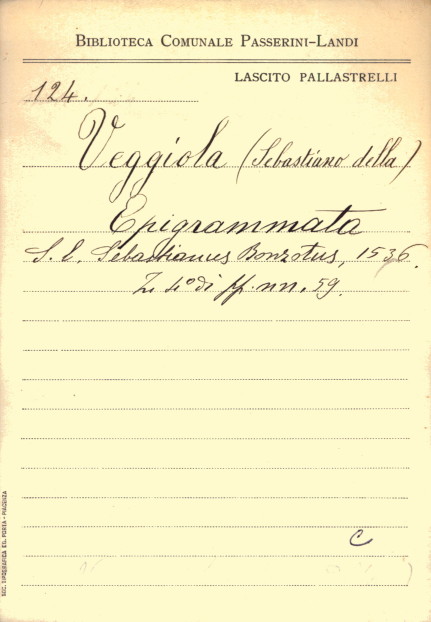 BIBLIOTECA COMUNALE PASSERINI-LANDI
LASCITO PALLASTRELLI
124.
Veggiola (Sebastiano della)
Epigrammata
S. l. Sebastianus Bonzotus, 1536.
In 4° di ff. nn. 59.
C
SOC. TIPOGRAFICA ED. PORTA - PIACENZA